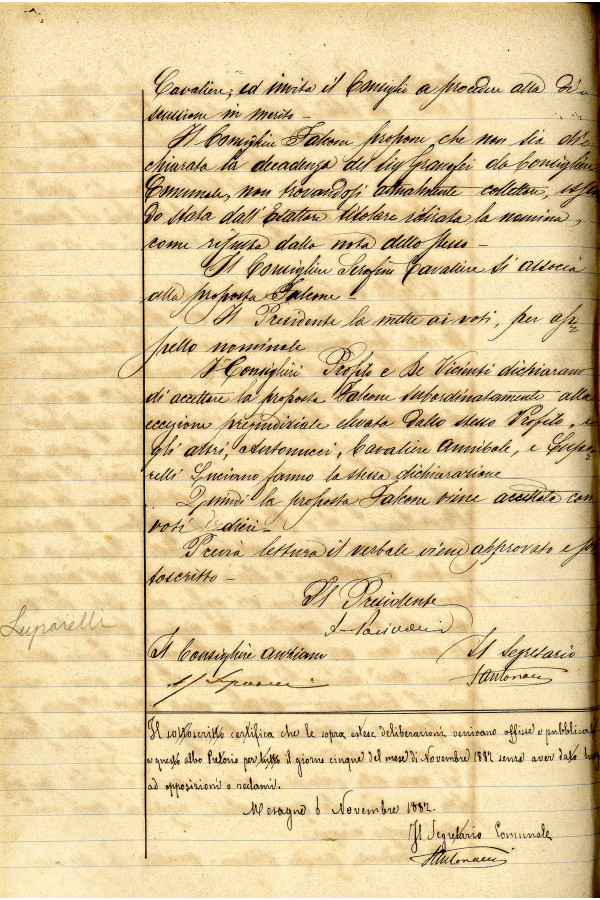 Cavaliere, ed invita il Consiglio a procedere alla di=
scussione in merito -
Il Consigliere Falcone propone che non sia di=
chiarata la decadenza del Sig Granafei da Consigliere
Comunale, non trovandosi attualmente collettore, essen
do stata dall'Esattore titolare ritirata la nomina,
come risulta dalla nota dello stesso -
Il Consigliere Serafino Cavaliere si associa
alla proposta Falcone -
Il Presidente la mette ai voti, per ap=
pello nominale
I Consiglieri Profilo e De Vicenti dichiarano
di accettare la proposta Falcone subordinatamente alla
eccezione pregiudiziale elevata dallo stesso Profilo, e
gli altri, Antonucci, Cavaliere Annibale, e
Luciano fanno la stessa dichiarazione
Quindi la proposta Falcone viene accettata con
voti
Previa lettura il verbale viene approvato e sot
toscritto -
Il Presidente
Luparelli
Il Consigliere anziano
Il Segretario
Antonucci
Il sottoscritto certifica che le sopra estese deliberazioni venivano affisse e pubblicate
a questo albo Pretorio per tutto il giorno cinque del mese di Novembre 1882 senza aver dato luogo
ad opposizioni o reclami.
Mesagne 6 Novembre 1882.
Il Segretario Comunale
Antonucci